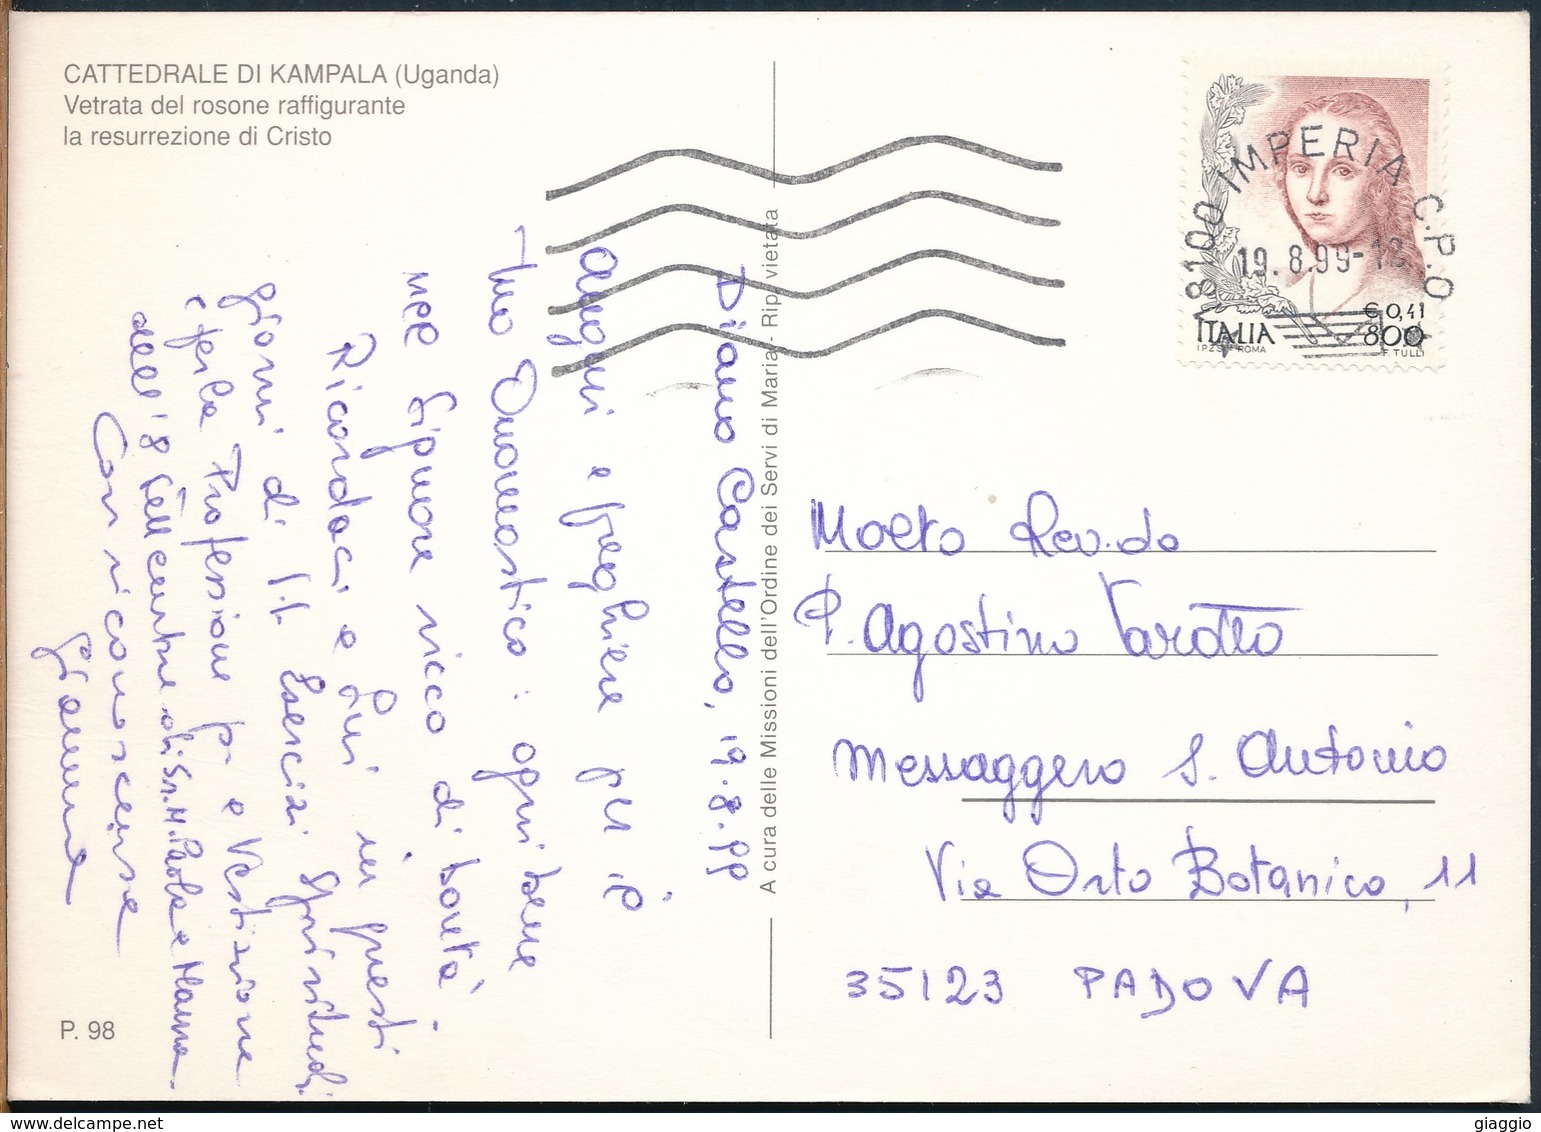 CATTEDRALE DI KAMPALA (Uganda)
Vetrata del rosone raffigurante
la resurrezione di Cristo
18100 IMPERIA C.P.O
19.8.99-12
€ 0,41
ITALIA 800
I.P.Z.S. ROMA F. TULLI
Diano Castello, 19.8.99
Auguri e preghiere per il
tuo Onomastico: ogni bene
nel Signore ricco di bontà.
Ricordaci e Lui in questi
giorni di Esercizi Spirituali
e per la Professione p. e Vestizione
dell'8 Sett. di Sr. M. Paola e
Con riconoscenza
A cura delle Missioni dell'Ordine dei Servi di Maria - Rip. vietata
Molto Rev.do
P. Agostino Varotto
Messaggero S. Antonio
Via Orto Botanico, 11
35123 PADOVA
P. 98
giaggio